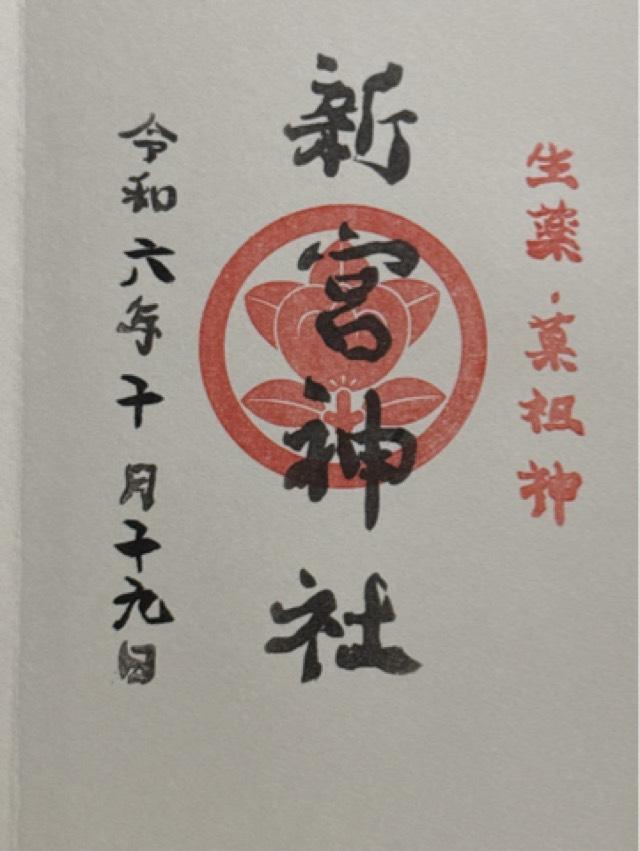 生薬・菓祖神
新宮神社
令和六年十月十九日